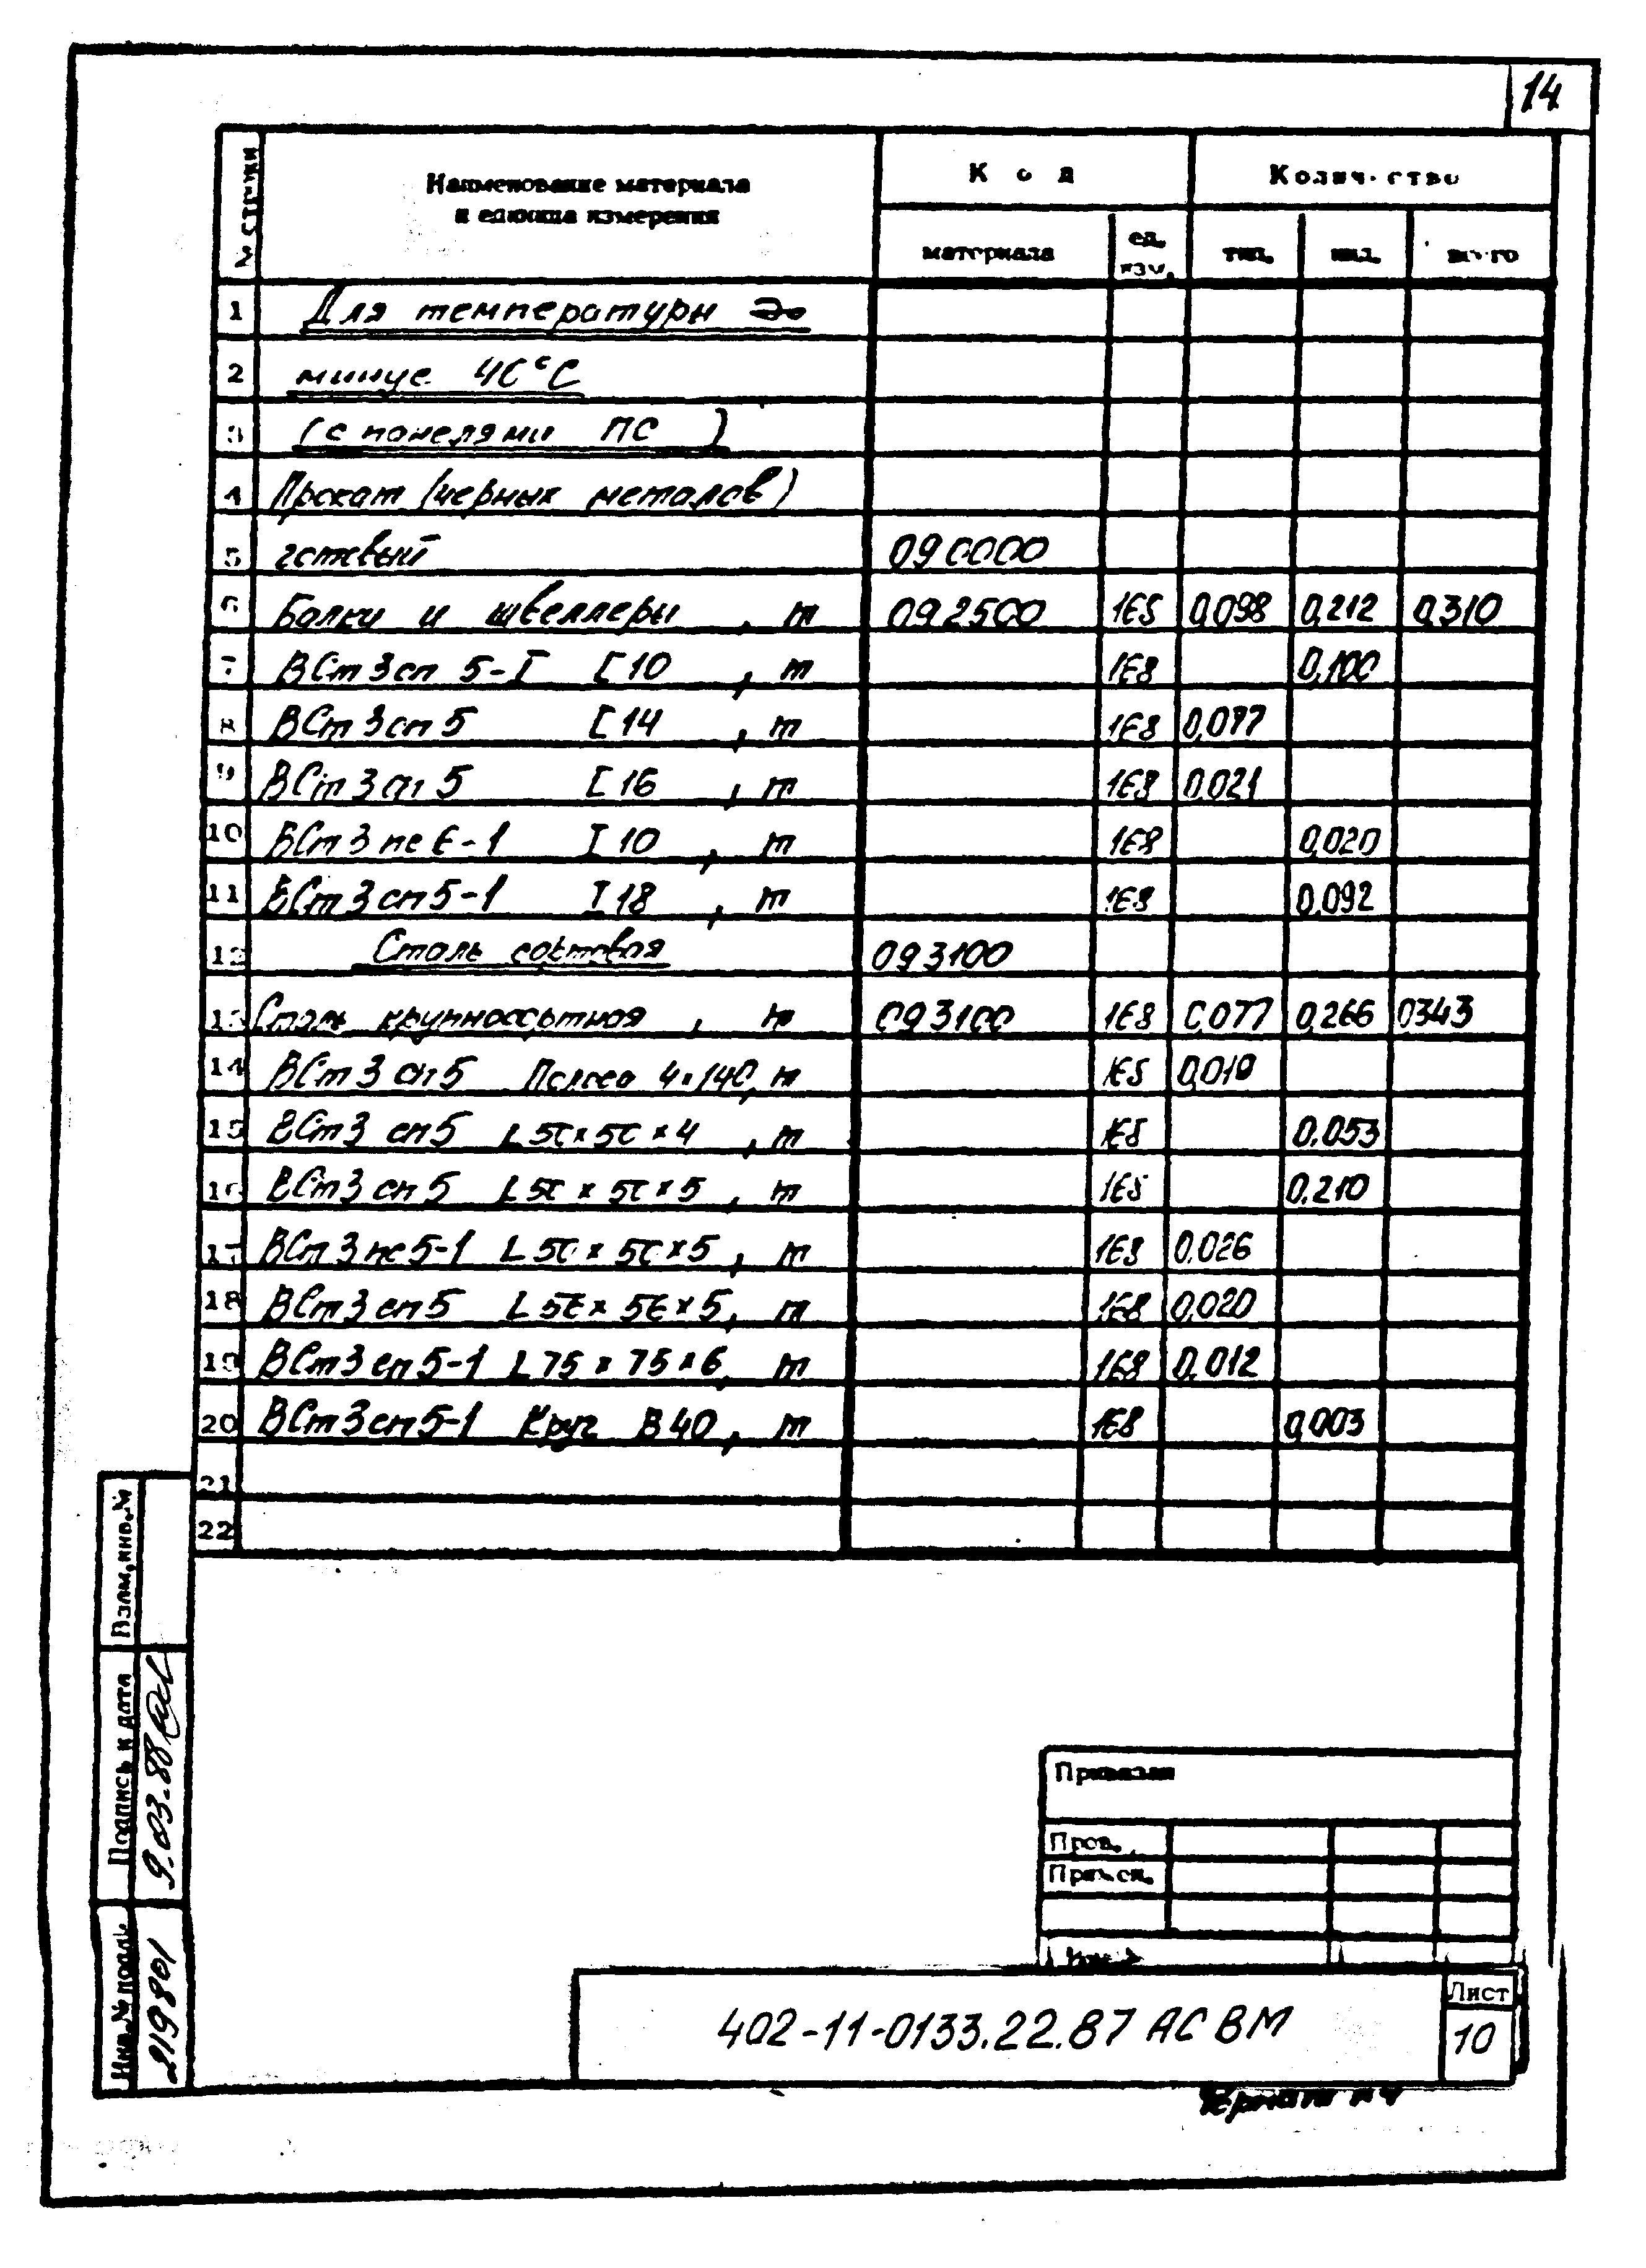 14
№ строки
Наименование материала
и единица измерения
Код
Количество
материала
ед.
изм.
тип.
инд.
всего
1 Для температуры до
2 минус 40°С
3 (с панелями ПС )
4 Прокат (черных металов)
5 готовый 090000
6 Балки и швеллеры , т 092500 1Е8 0,098 0,212 0,310
7 ВСт3сп 5-I [ 10 , т 1Е8 0,100
8 ВСт3сп5 [ 14 , т 1Е8 0,077
9 ВСт3сп5 [ 16 , т 1Е8 0,021
10 ВСт3пс6-1 I 10 , т 1Е8 0,020
11 ВСт3сп5-1 I 18 , т 1Е8 0,092
12 Сталь сортовая 093100
13 Сталь крупносортная , т 093100 1Е8 0,077 0,266 0343
14 ВСт3сп5 Полоса 4×140, т 1Е8 0,019
15 ВСт3сп5 L 50×50×4 , т 1Е8 0,053
16 ВСт3сп5 L 50×50×5 , т 1Е8 0,210
17 ВСт3пс5-1 L 50×50×5 , т 1Е8 0,026
18 ВСт3сп5 L 56×56×5, т 1Е8 0,020
19 ВСт3сп5-1 L 75×75×6, т 1Е8 0,012
20 ВСт3сп5-1 Круг В40, т 1Е8 0,003
21
22
Взам.инв.№
Подпись и дата
9.03.88
Инв.№ подл.
219801
Привязан
Пров.
402-11-0133.22.87 АС ВМ
Лист
10
Формат А4